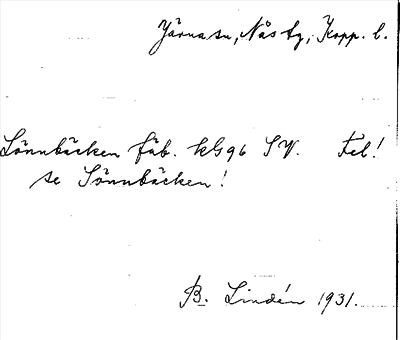 Järna sn, Nås tg, Kopp. l.
Lönnbäcken fäb. kbl 96 SV. Fel!
se Sönnbäcken!
B. Lindén 1931.